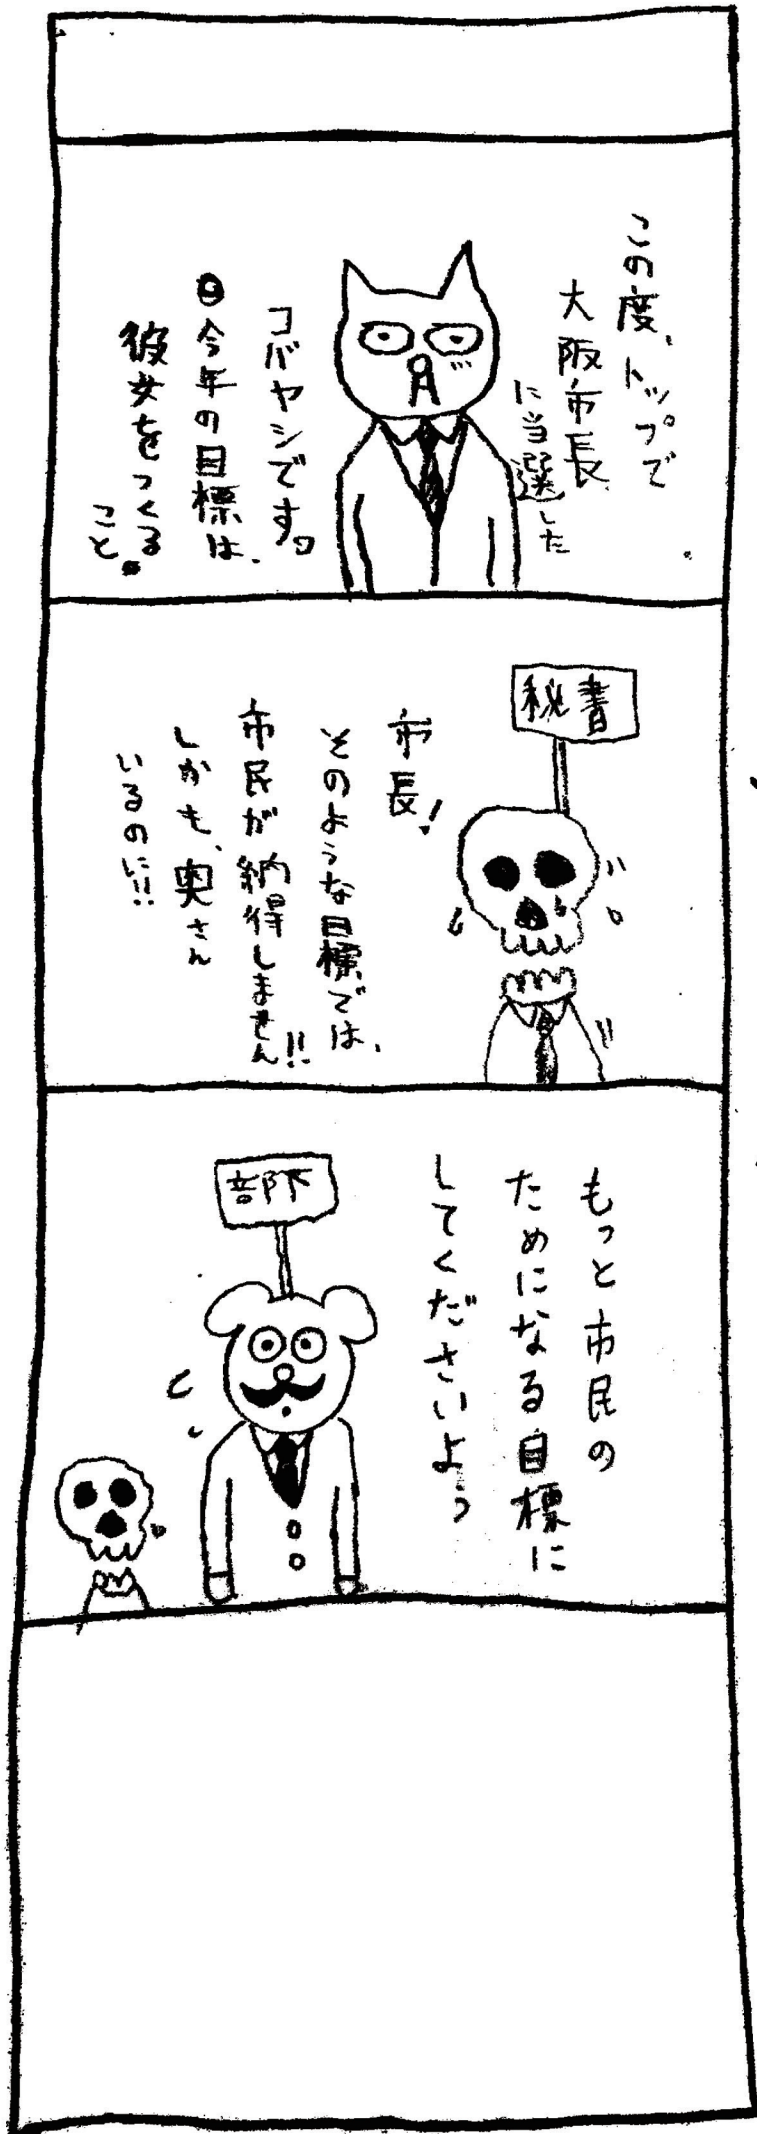 この度、トップで
大阪市長
に当選した
コバヤシです。
今年の目標は、
彼女をつくる
こと。
秘書
市長!
そのような目標では、
市民が納得しません!!
しかも、奥さん
いるのに!!
もっと市民の
ためになる目標に
してくださいよぅ
部下